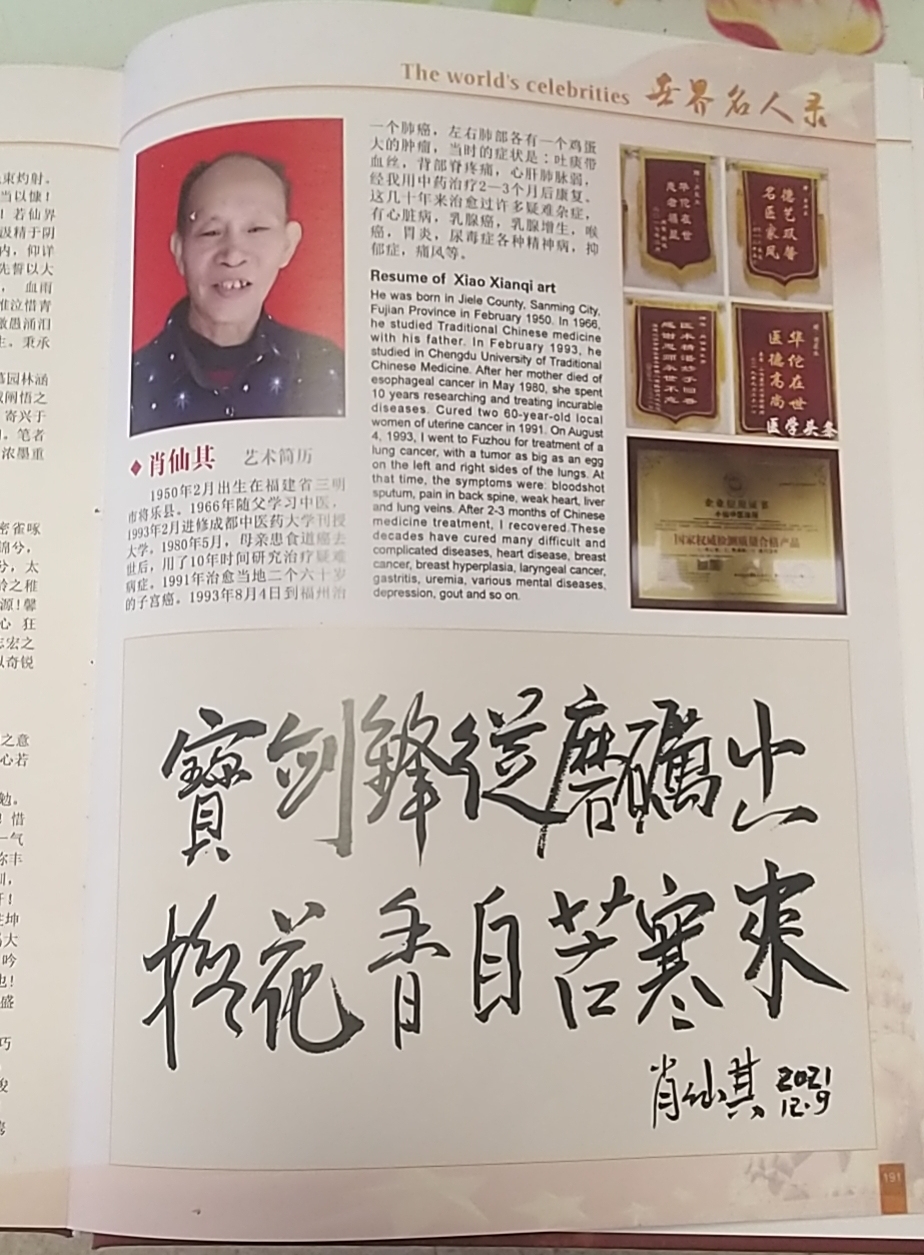 The world's celebrities 世界名人录
束灼射。
当以慷!
!若仙界
及精于阴
内,仰详
先誓以大
,血雨
惟泣惜青
激愚涌泪
生。秉承
墓园林涵
或阐悟之
寄兴于
。笔者
浓墨重
密雀啄
锦兮,
兮,太
龄之稚
源!馨
心 狂
志宏之
以奇锐
之意
心若
勉。
!惜
一气
弥丰
圳,
开!
生坤
吟
也!
盛
巧
肖仙其 艺术简历
1950年2月出生在福建省三明
市将乐县。1966年随父学习中医,
1993年2月进修成都中医药大学刊授
大学。1980年5月,母亲患食道癌去
世后,用了10年时间研究治疗疑难
病症。1991年治愈当地二个六十岁
的子宫癌。1993年8月4日到福州治
一个肺癌,左右肺部各有一个鸡蛋
大的肿瘤,当时的症状是:吐痰带
血丝,背部脊疼痛,心肝肺脉弱,
经我用中药治疗2—3个月后康复。
这几十年来治愈过许多疑难杂症,
有心脏病,乳腺癌,乳腺增生,喉
癌,胃炎,尿毒症各种精神病,抑
郁症,痛风等。
Resume of Xiao Xianqi art
He was born in Jiele County, Sanming City,
Fujian Province in February 1950. In 1966,
he studied Traditional Chinese medicine
with his father. In February 1993, he
studied in Chengdu University of Traditional
Chinese Medicine. After her mother died of
esophageal cancer in May 1980, she spent
10 years researching and treating incurable
diseases. Cured two 60-year-old local
women of uterine cancer in 1991. On August
4, 1993, I went to Fuzhou for treatment of a
lung cancer, with a tumor as big as an egg
on the left and right sides of the lungs. At
that time, the symptoms were: bloodshot
sputum, pain in back spine, weak heart, liver
and lung veins. After 2-3 months of Chinese
medicine treatment, I recovered.These
decades have cured many difficult and
complicated diseases, heart disease, breast
cancer, breast hyperplasia, laryngeal cancer,
gastritis, uremia, various mental diseases,
depression, gout and so on.
华佗在世
德艺双馨
名医家风
医术精湛妙手回春
感谢恩师永世不忘
华佗在世
医德高尚
医学头条
企业信用证书
国家权威检测质量合格产品
寶剑鋒從磨礪出
梅花香自苦寒來
肖仙其 2021
12.9
191